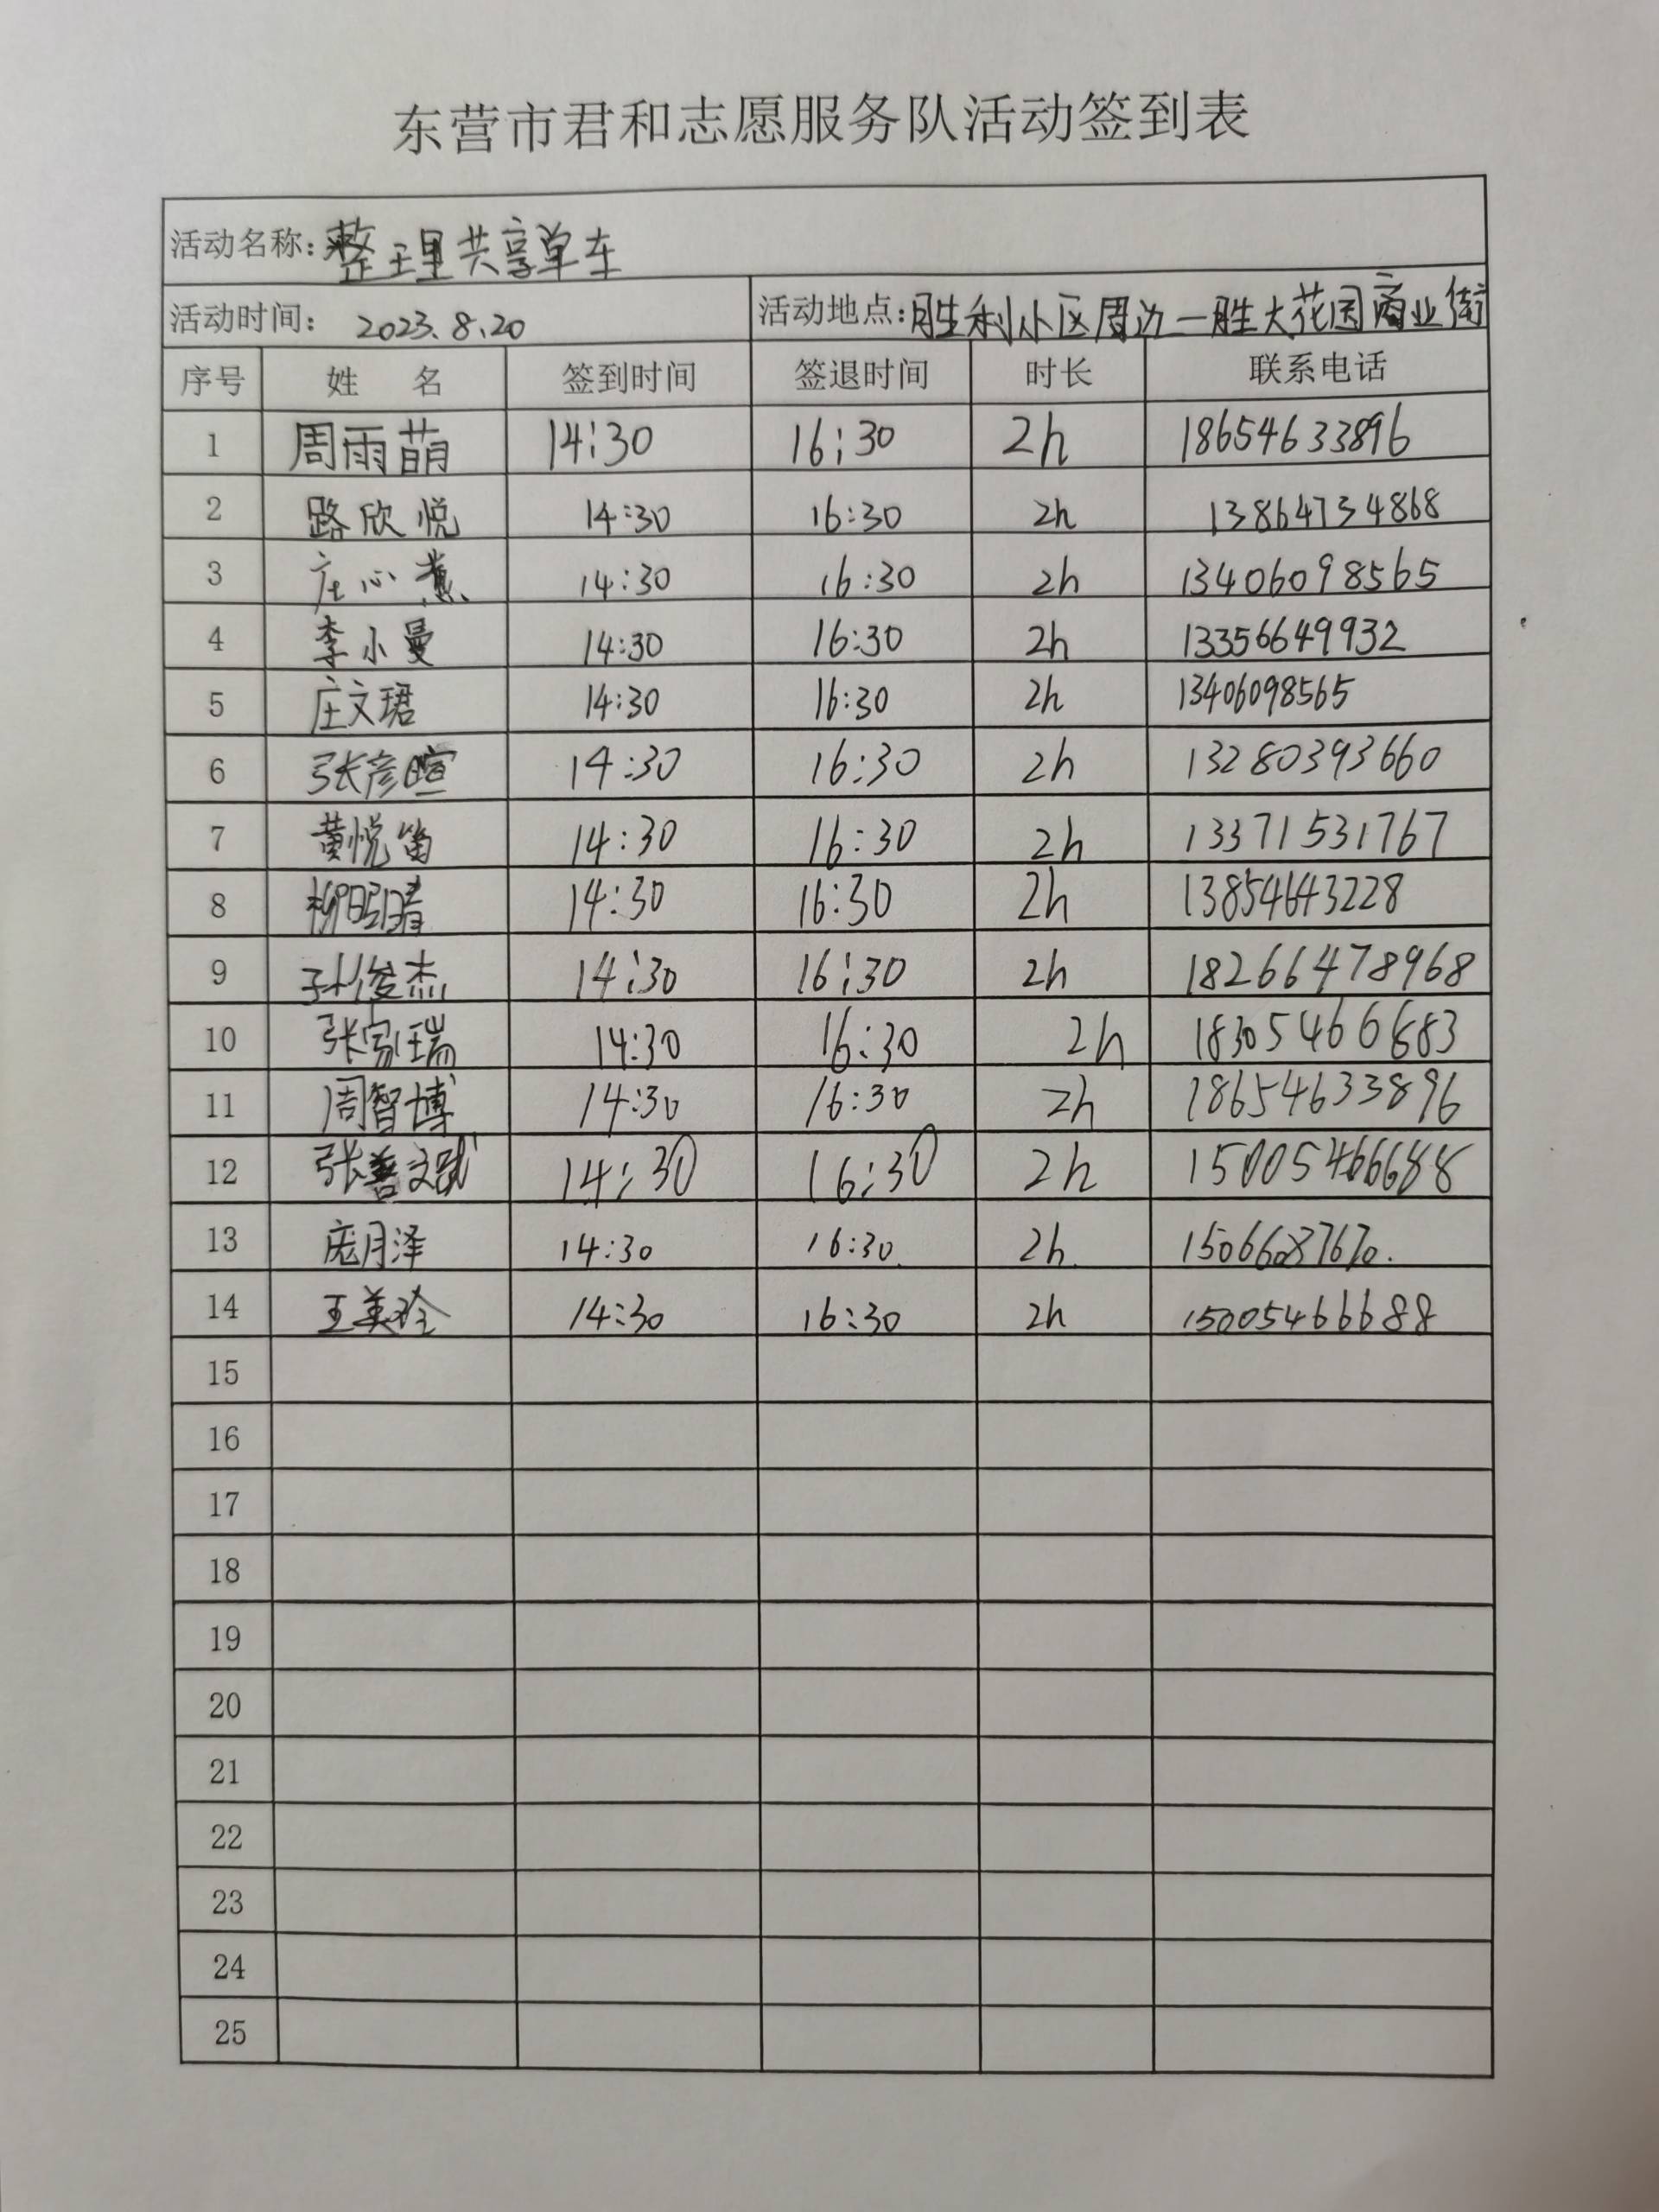 东营市君和志愿服务队活动签到表
活动名称：整理共享单车
活动时间： 2023.8.20 活动地点：胜利小区周边一胜大花园商业街
序号 姓 名 签到时间 签退时间 时长 联系电话
1 周雨萌 14:30 16:30 2h 18654633896
2 路欣悦 14:30 16:30 2h 13864734868
3 庄心 14:30 16:30 2h 13406098565
4 李小曼 14:30 16:30 2h 13356649932
5 庄文珺 14:30 16:30 2h 13406098565
6 张彦暄 14:30 16:30 2h 13280393660
7 黄悦笛 14:30 16:30 2h 13371531767
8 柳昭晴 14:30 16:30 2h 13854643228
9 孙俊杰 14:30 16:30 2h 18266478968
10 张家瑞 14:30 16:30 2h 18305466683
11 周智博 14:30 16:30 2h 18654633896
12 张善斌 14:30 16:30 2h 15005466688
13 庞月泽 14:30 16:30. 2h. 15066087670.
14 王美玲 14:30 16:30 2h 15005466688
15
16
17
18
19
20
21
22
23
24
25